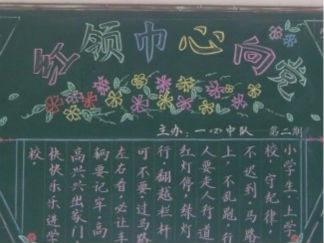 红领巾心向党
主办：一(2)中队 第二期
小学生，上学
校，守纪律，
不迟到，马路
上，不乱跑，行
人要走人行道
红灯停，绿灯
行，翻越栏杆
可不要，过马路
左右看，必让车
辆要记牢，高
高兴兴出家门，
快快乐乐进学
校。